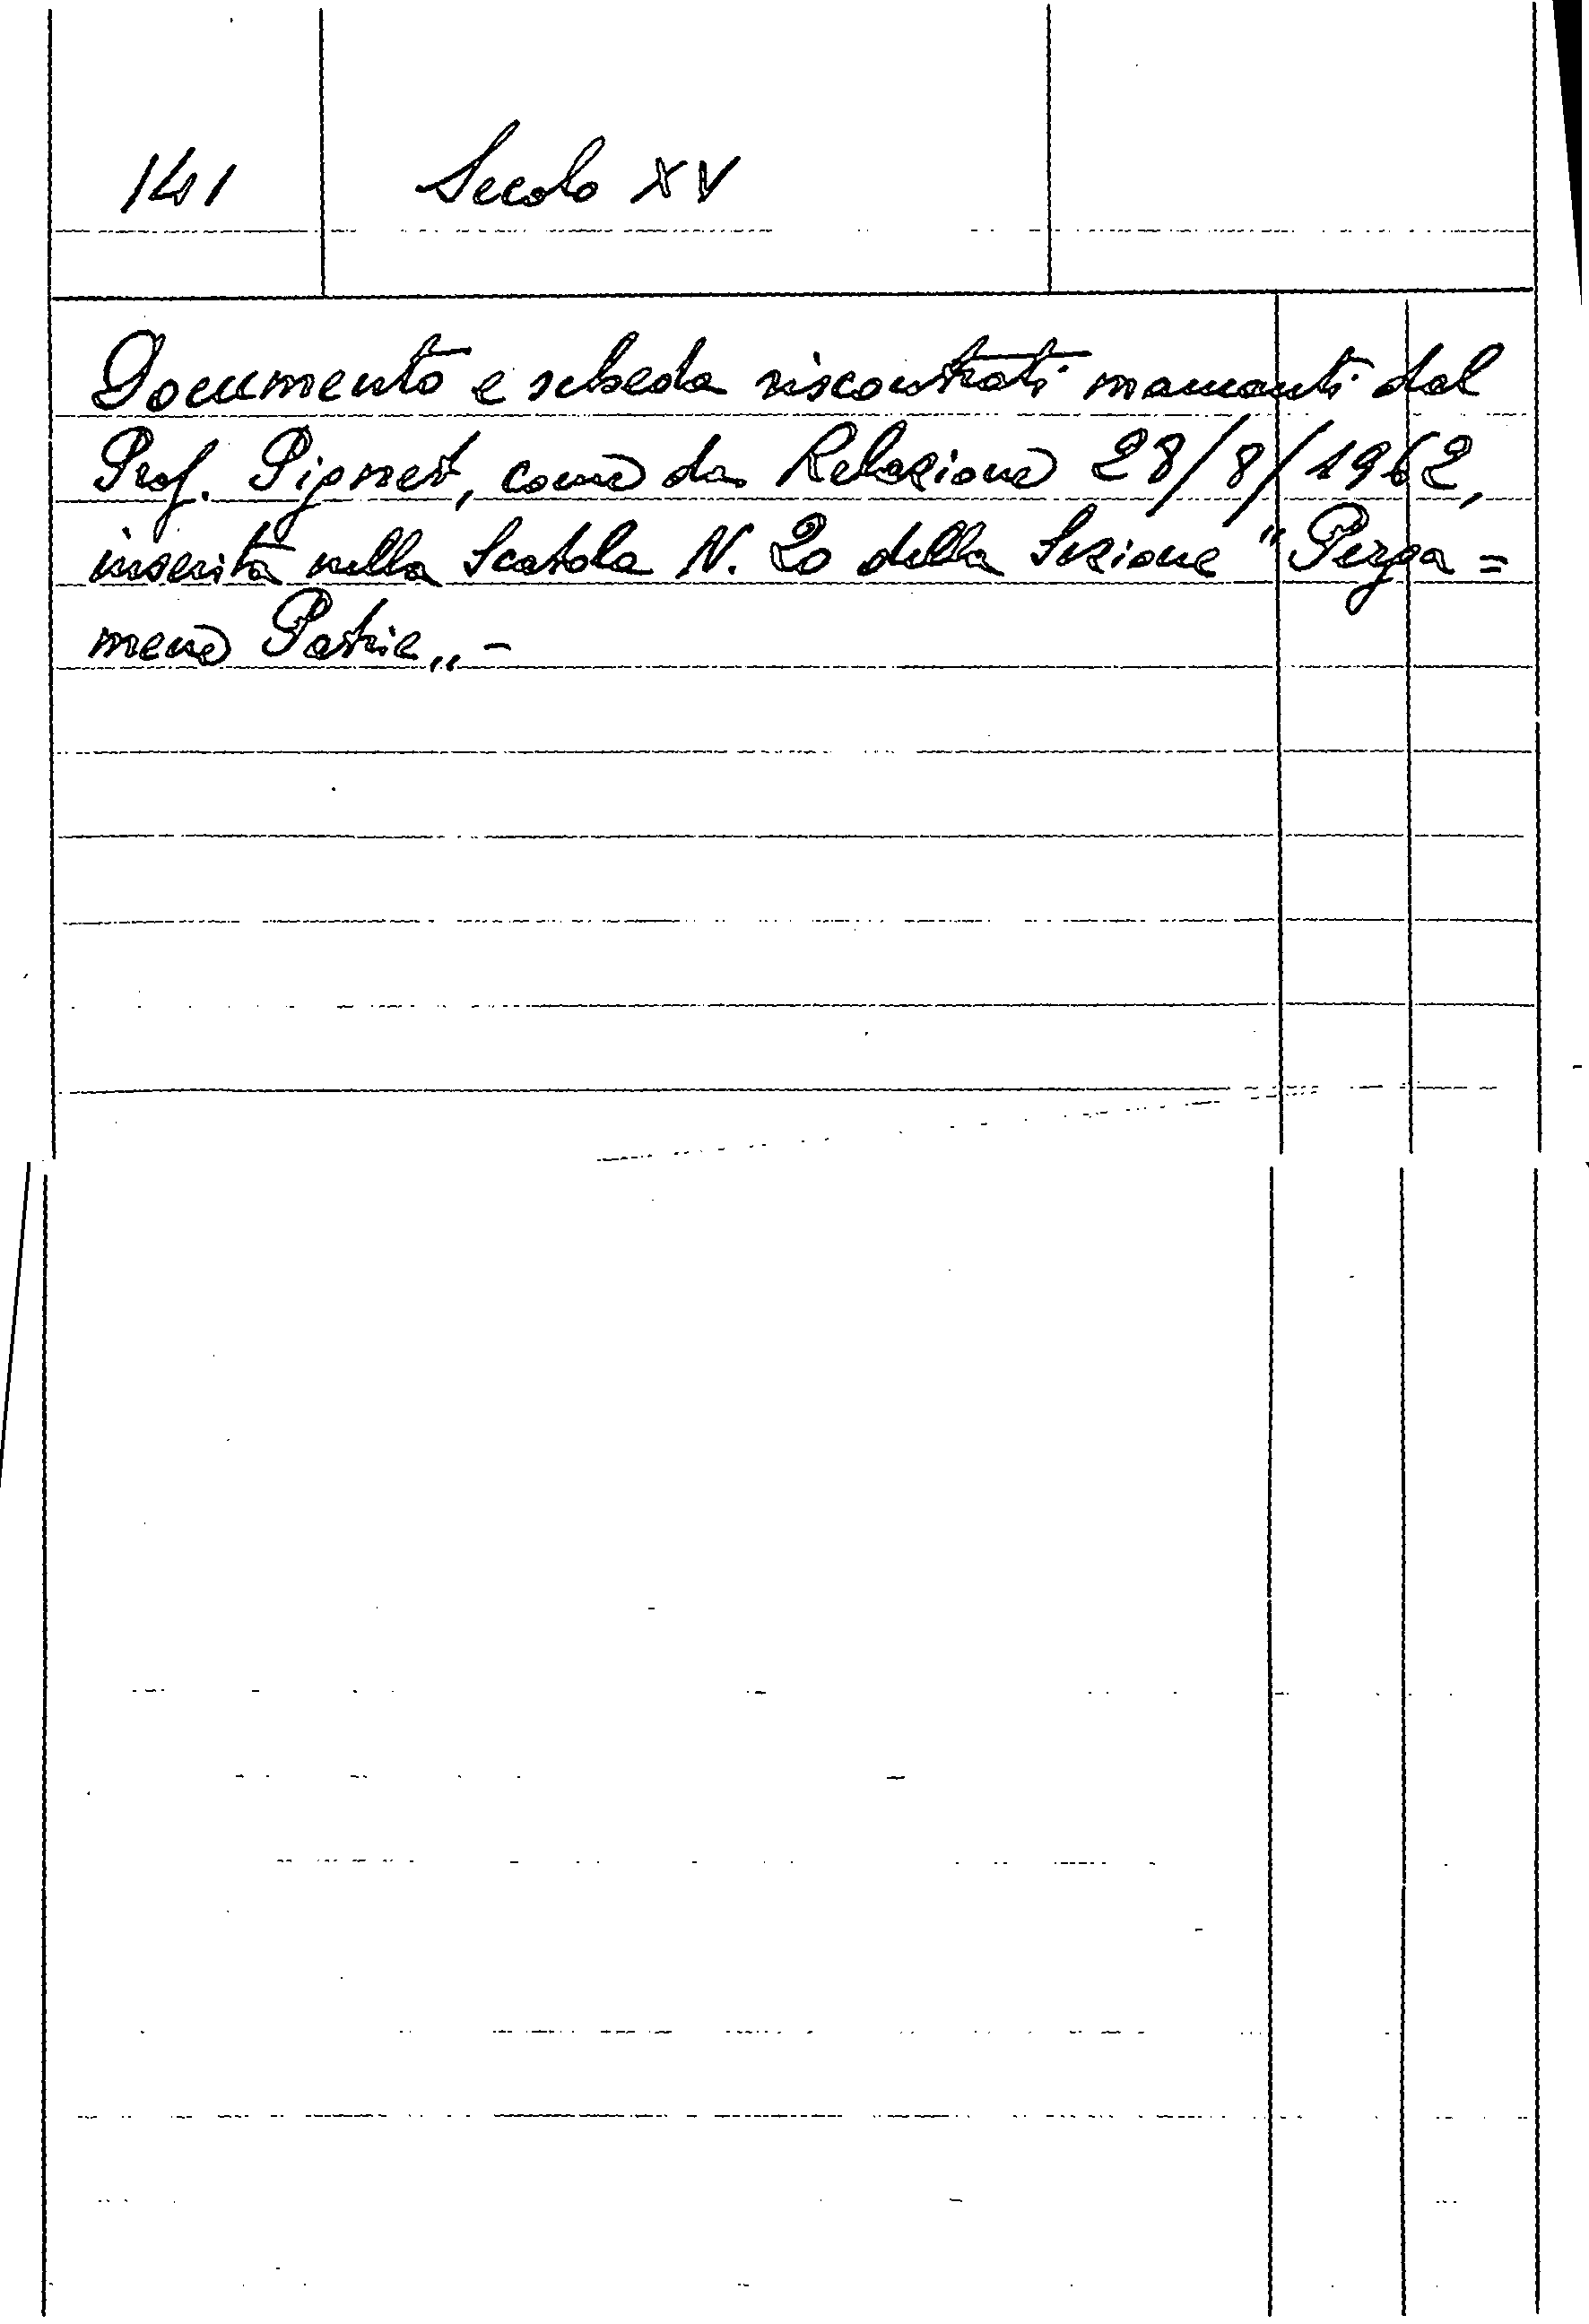 141 Secolo XV
Documento e scheda riscontrati mancanti dal
Prof. Pignet, come da Relazione 28/8/1962,
inserita nella Scatola N. 20 della Sezione "Perga=
mene Patrie„ -